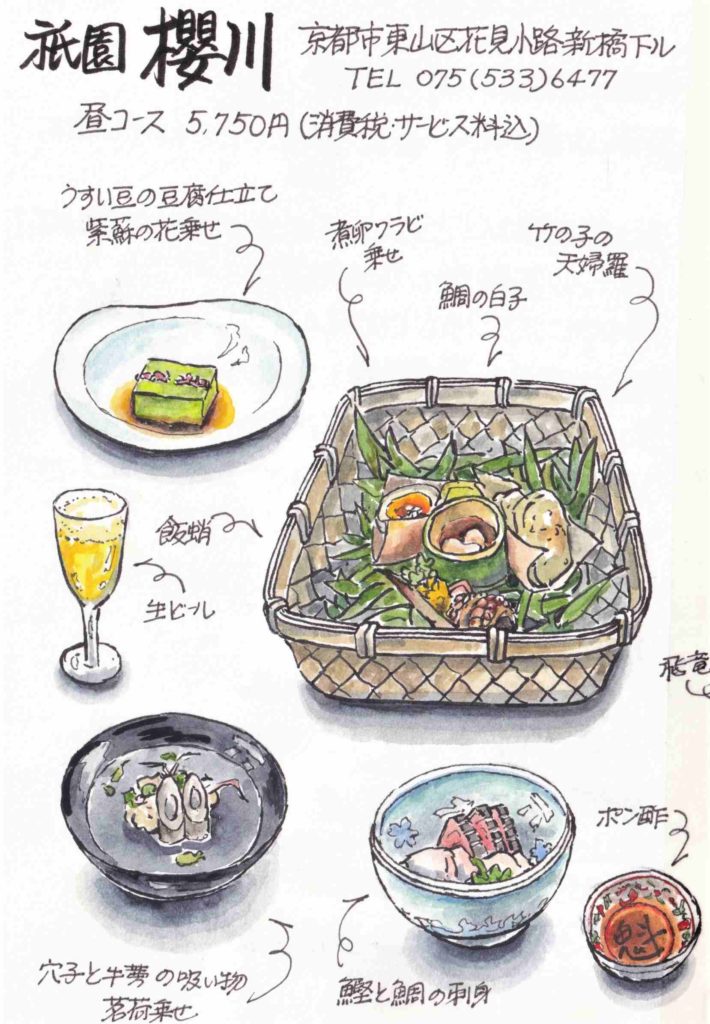 祇園 櫻川
京都市東山区花見小路新橋下ル
TEL 075(533)6477
昼コース 5,750円(消費税・サービス料込)
うすい豆の豆腐仕立て
紫蘇の花乗せ
煮卵ワラビ
乗せ
鯛の白子
竹の子の
天婦羅
飯蛸
生ビール
飛竜
ポン酢
魁
穴子と牛蒡の吸い物
茗荷乗せ
鰹と鯛の刺身